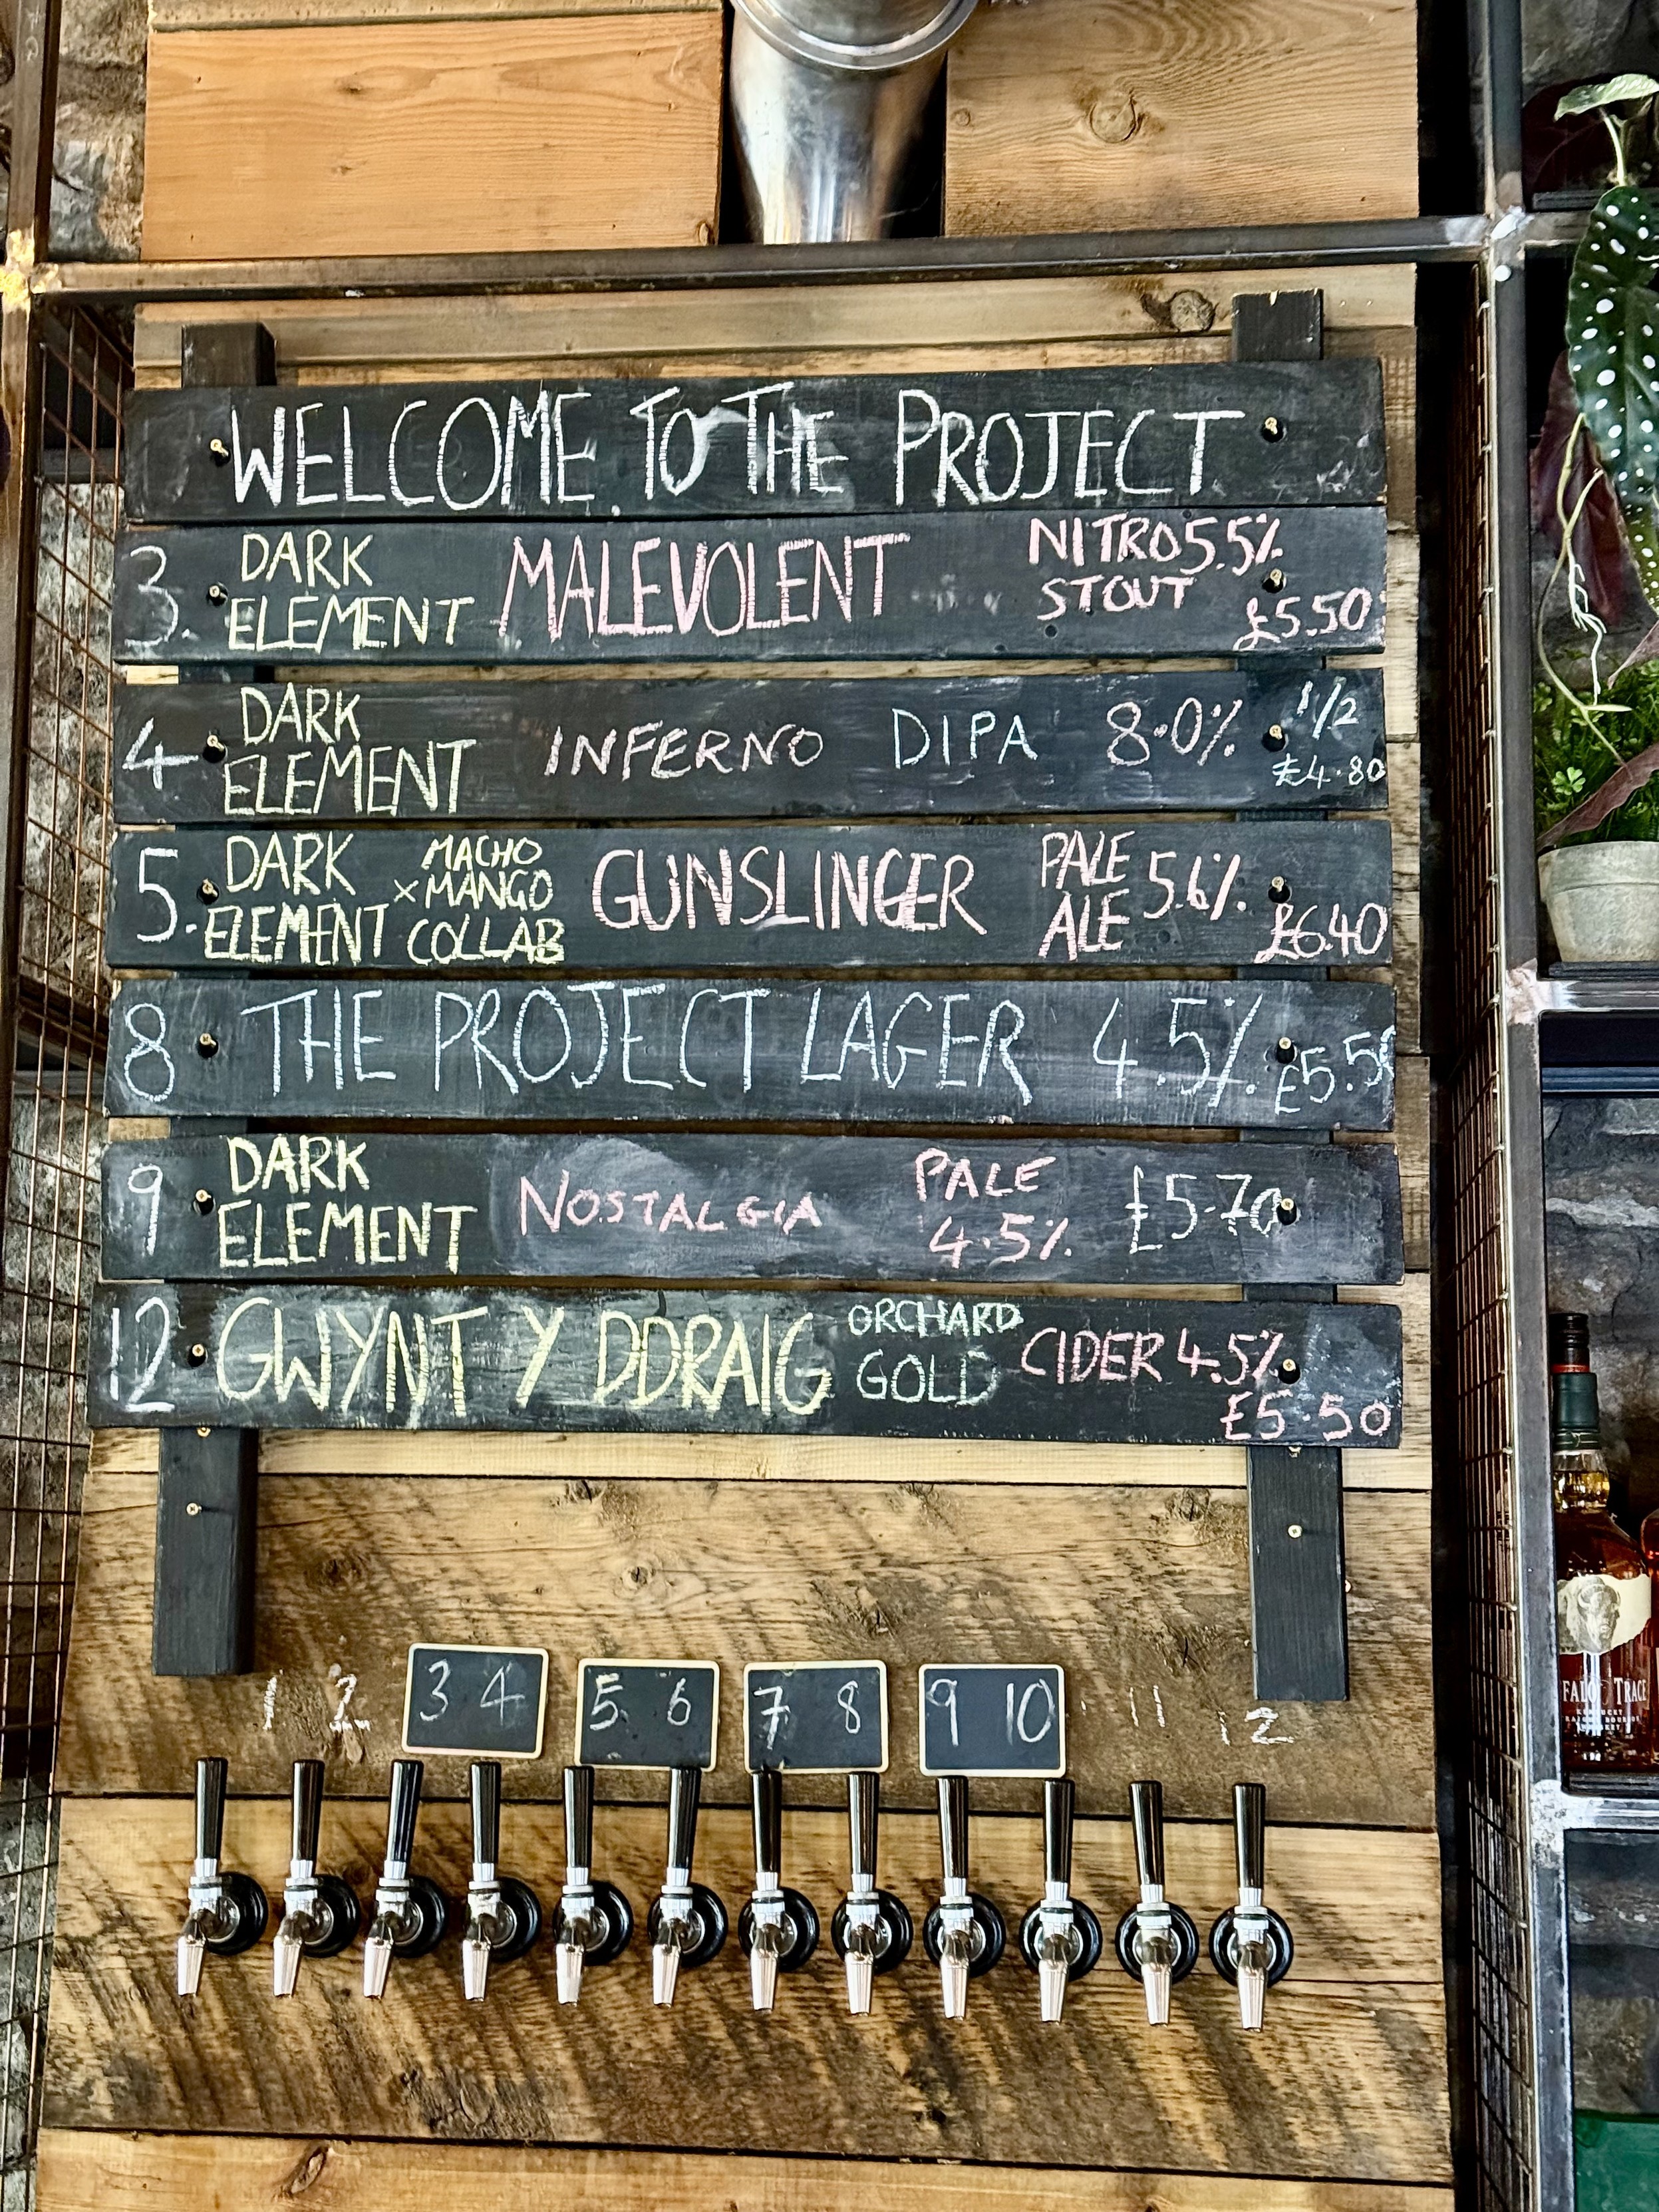 WELCOME TO THE PROJECT
3. DARK ELEMENT MALEVOLENT NITRO STOUT 5.5% £5.50
4 DARK ELEMENT INFERNO DIPA 8.0% 1/2 £4.80
5. DARK ELEMENT x MACHO MANGO COLLAB GUNSLINGER PALE ALE 5.6% £6.40
8 THE PROJECT LAGER 4.5% £5.50
9 DARK ELEMENT NOSTALGIA PALE 4.5% £5.70
12 GWYNT Y DDRAIG ORCHARD GOLD CIDER 4.5% £5.50
1 2 3 4 5 6 7 8 9 10 11 12
TRACE
KENTUCKY